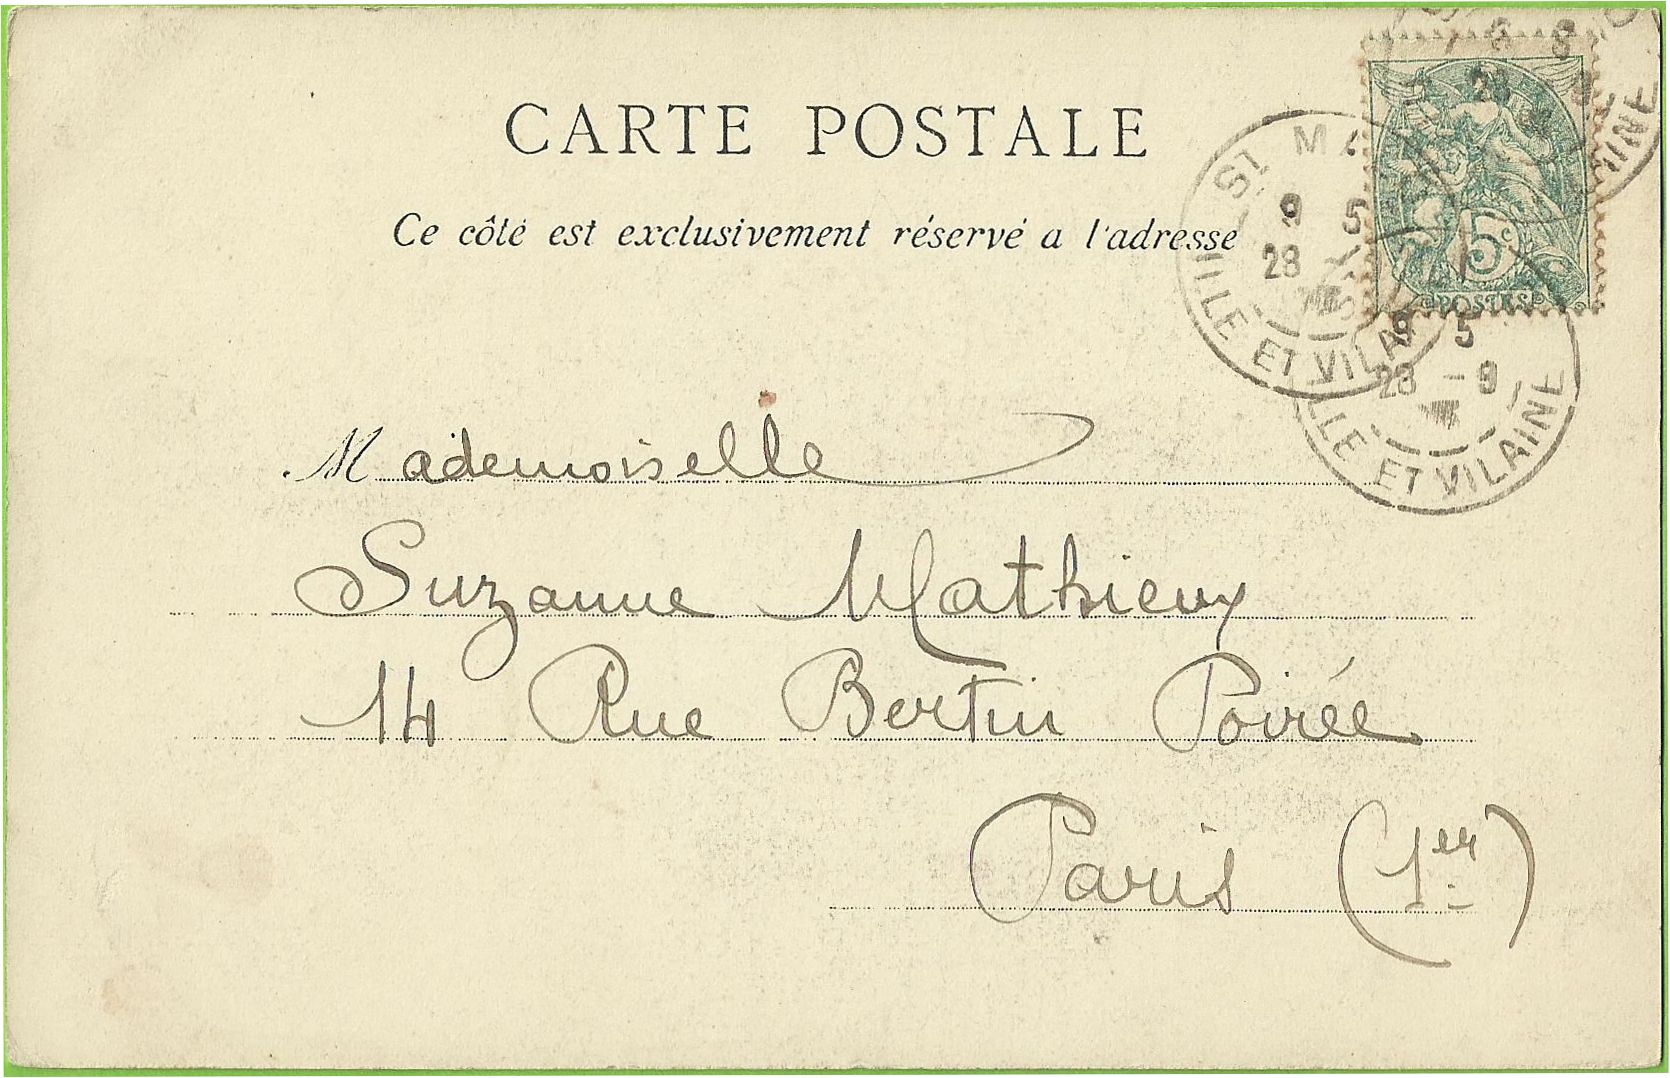 CARTE POSTALE
Ce côté est exclusivement réservé a l'adresse
ST MA
9 5
28
ILLE ET VILAINE
5c
POSTES
9 5
28 - 9
ILLE ET VILAINE
Mademoiselle
Suzanne Mathieux
14 Rue Bertin Poirée
Paris (1er)